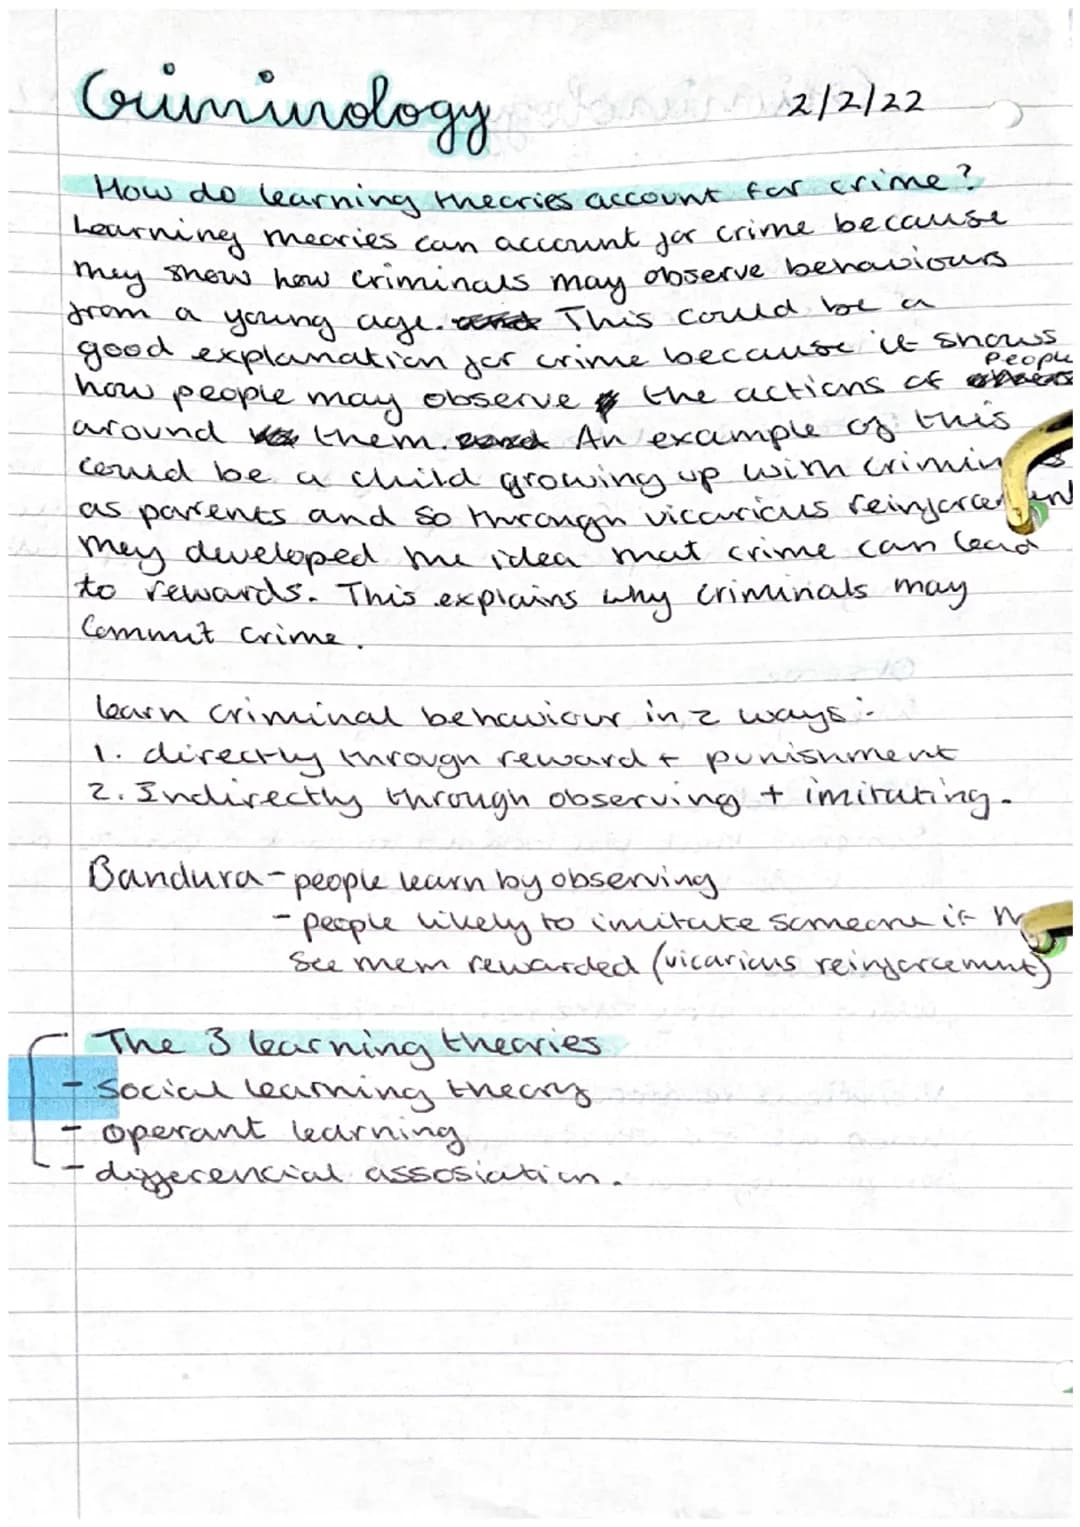 Criminology 2/2/22
How do learning theories account for crime?
Learning theories can account for crime because
they show how criminals may observe behaviours
from a young age. and This could be a
good explanation for crime because it shows
how people may observe the actions of others people
around them. and An example of this
could be a child growing up with
as parents and so through vicarious reinforcement
they developed the idea that crime can lead
to rewards. This explains why criminals may
Commit crime.
learn criminal behaviour in 2 ways:-
1. directly through reward + punishment
2. Indirectly through observing + imitating.
Bandura - people learn by observing
- people likely to imitate someone if
see them rewarded (vicarious reinforcement)
The 3 learning theories
- Social learning theory
- operant learning
- differencial assosiation.